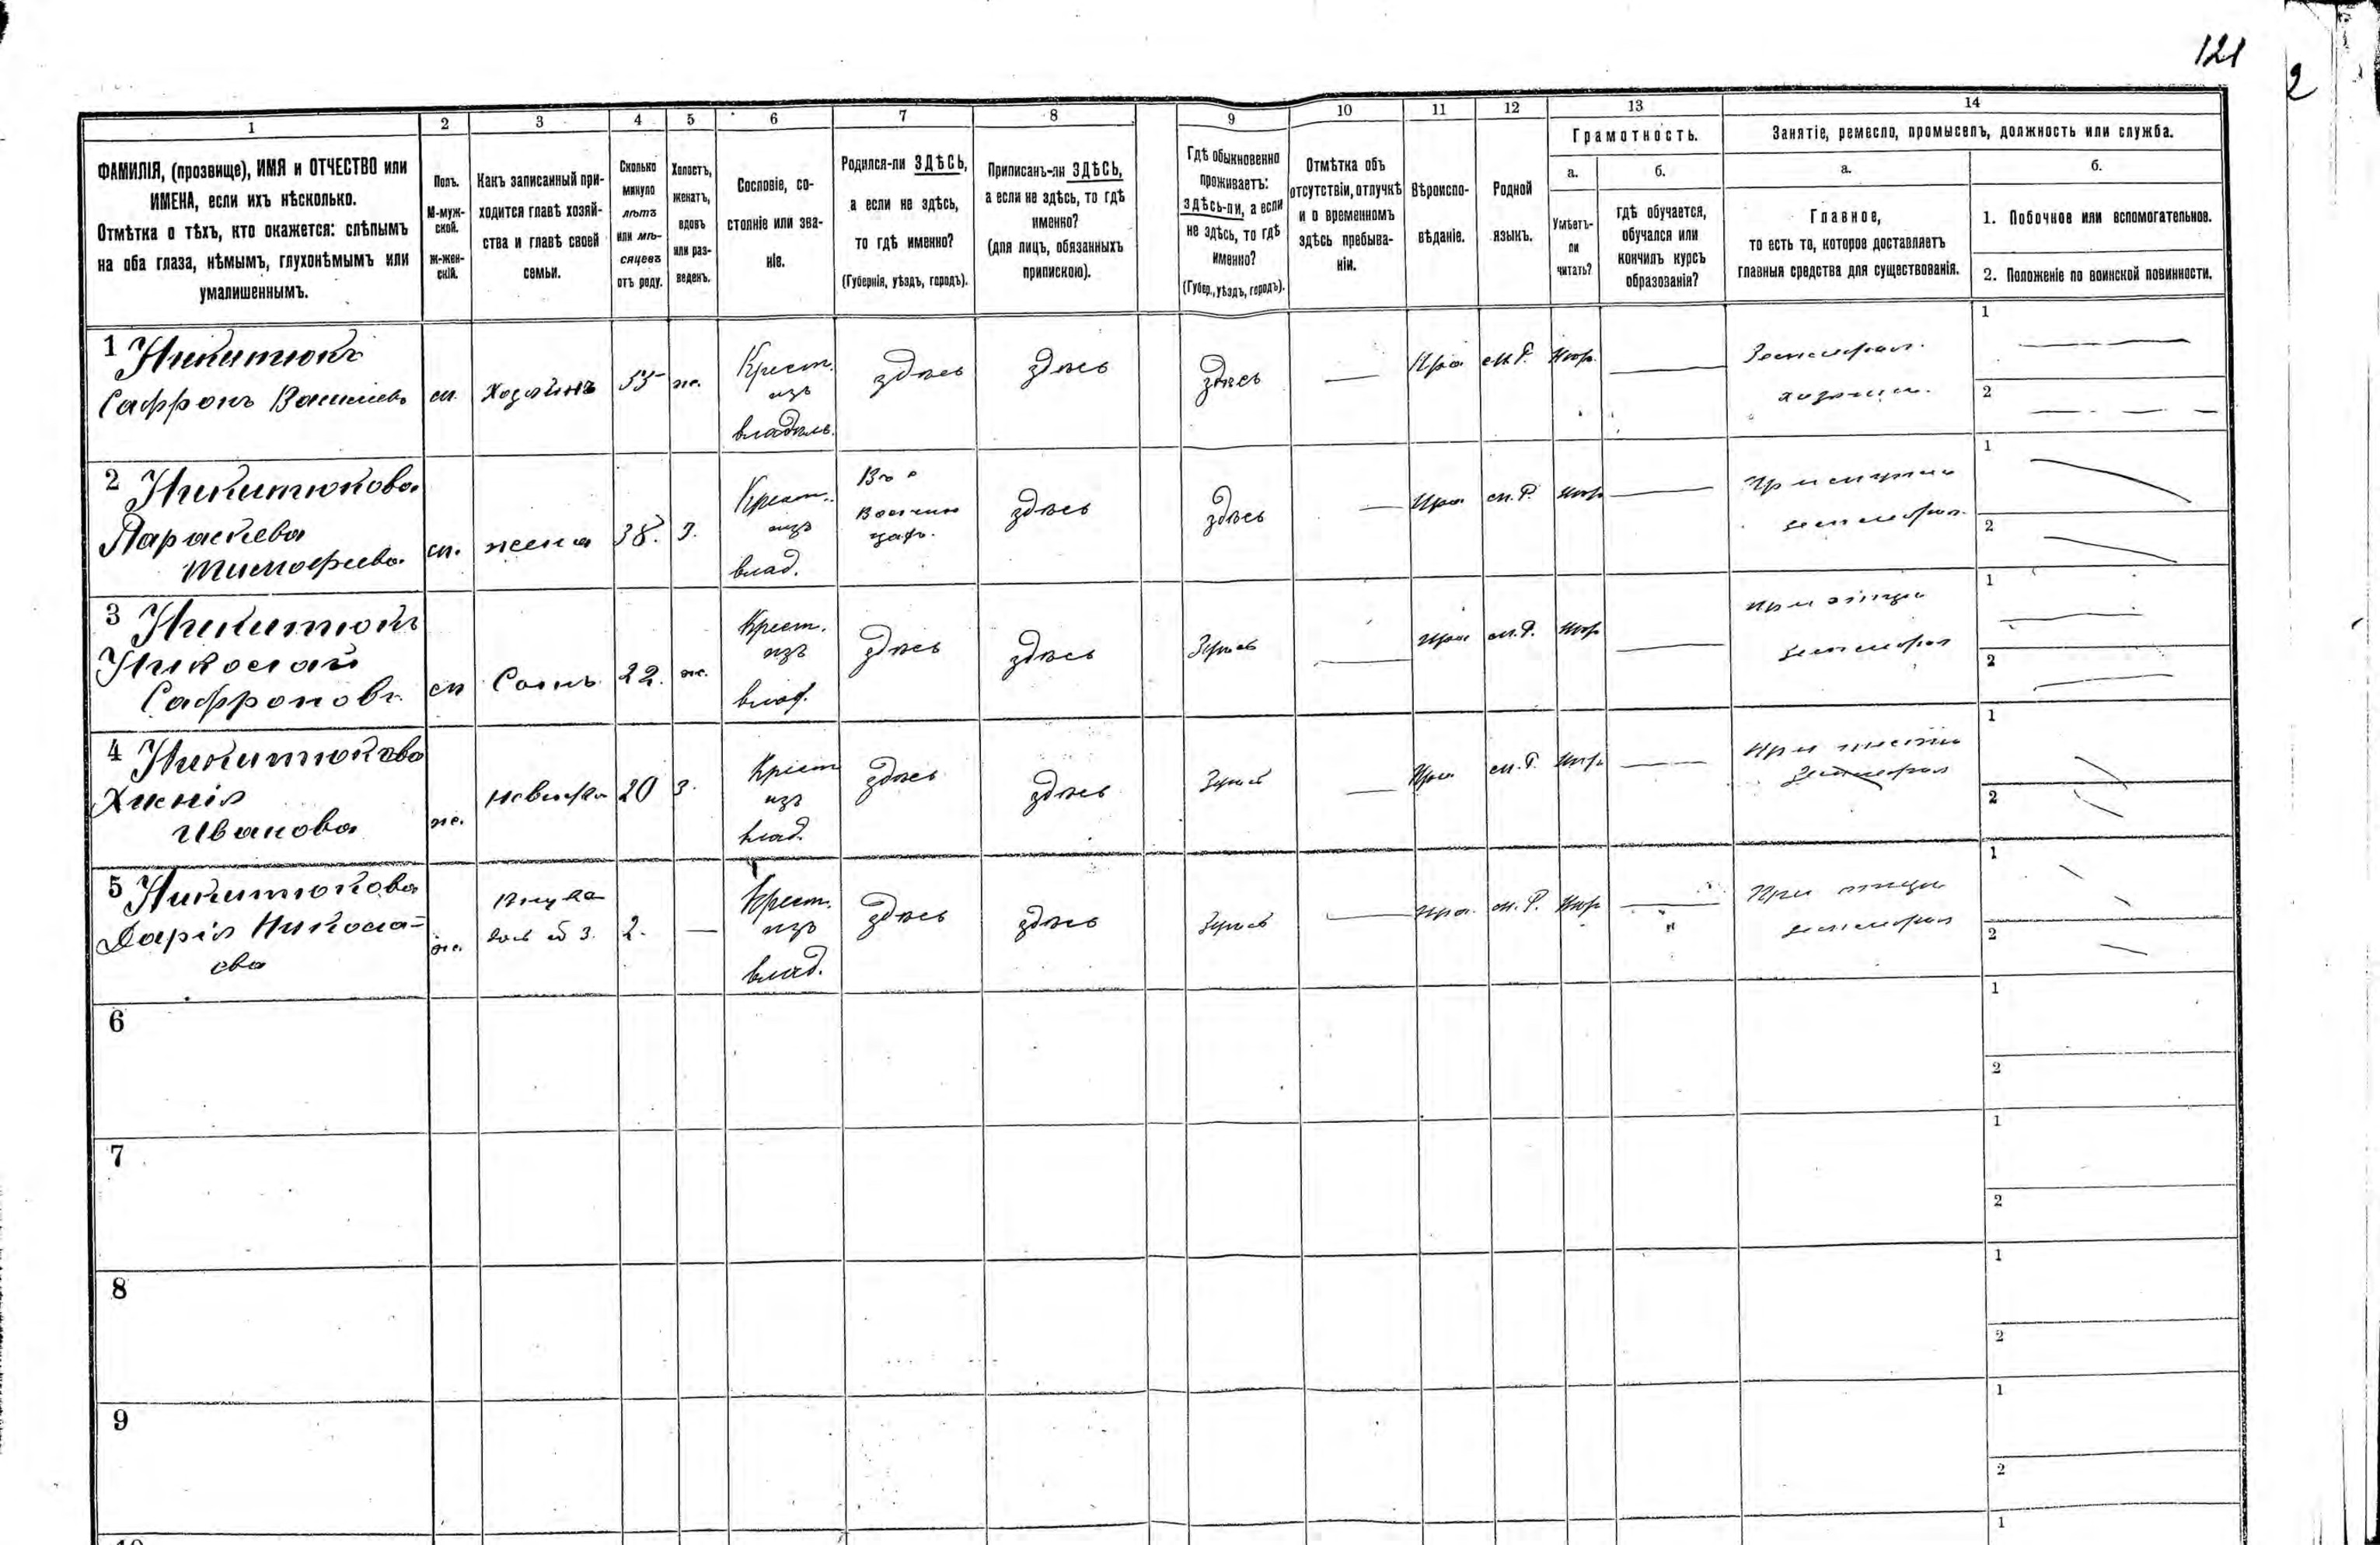 121
2
1
2
3
4
5
6
7
8
9
10
11
12
13
14
ФАМИЛІЯ, (прозвище), ИМЯ и ОТЧЕСТВО или
ИМЕНА, если ихъ нѣсколько.
Отмѣтка о тѣхъ, кто окажется: слѣпымъ
на оба глаза, нѣмымъ, глухонѣмымъ или
умалишеннымъ.
Полъ.
М-муж-
ской.
ж-жен-
скій.
Какъ записанный при-
ходится главѣ хозяй-
ства и главѣ своей
семьи.
Сколько
минуло
лѣтъ
или мѣ-
сяцевъ
отъ роду.
Холостъ,
женатъ,
вдовъ
или раз-
веденъ.
Сословіе, со-
стояніе или зва-
ніе.
Родился-ли ЗДѢСЬ,
а если не здѣсь,
то гдѣ именно?
(Губернія, уѣздъ, городъ).
Приписанъ-ли ЗДѢСЬ,
а если не здѣсь, то гдѣ
именно?
(для лицъ, обязанныхъ
припискою).
Гдѣ обыкновенно
проживаетъ:
здѣсь-ли, а если
не здѣсь, то гдѣ
именно?
(Губер., уѣздъ, городъ).
Отмѣтка объ
отсутствіи, отлучкѣ
и о временномъ
здѣсь пребыва-
ніи.
Вѣроиспо-
вѣданіе.
Родной
языкъ.
Грамотность.
а.
Умѣетъ-
ли
читать?
б.
гдѣ обучается,
обучался или
кончилъ курсъ
образованія?
Занятіе, ремесло, промыселъ, должность или служба.
а.
Главное,
то есть то, которое доставляетъ
главныя средства для существованія.
б.
1. Побочное или вспомогательное.
2. Положеніе по воинской повинности.
1 Никитюкъ
Сафронъ Василіевъ
м.
Хозяинъ
55
ж.
Крест.
изъ
владѣль.
здѣсь
здѣсь
здѣсь
Пра
м.Р.
Земледѣл.
хозяин.
1
2
2 Никитюкова
Параскева
Тимофеева
м.
жена
38.
З.
Крест.
изъ
влад.
здѣсь
здѣсь
Пра
м.Р.
При мужѣ
земледѣл.
1
2
3 Никитюкъ
Николай
Сафроновъ
м
Сынъ
22.
ж.
Крест.
изъ
влад.
здѣсь
здѣсь
Здѣсь
Пра
м.Р.
при отцѣ
земледѣл
1
2
4 Никитюкова
Хикнія
Иванова
ж.
невѣстка
20
З.
Крест
изъ
влад.
здѣсь
здѣсь
Здѣсь
Пра
м.Р.
При
земледѣл
1
2
5 Никитюкова
Дарія Никола-
ева
ж.
Внука
2.
Крест.
изъ
влад.
здѣсь
здѣсь
Здѣсь
Пра.
м.Р.
При отцѣ
земледѣл
1
2
6
1
2
7
1
2
8
1
2
9
1
2
1